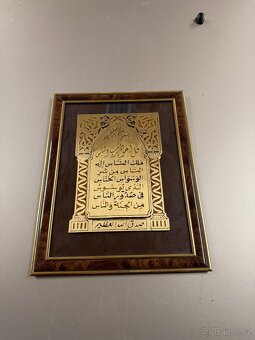 قل أعوذ برب الناس
ملك الناس إله
الناس من شر
الوسواس الخناس
الذي يوسوس
في صدور الناس
من الجنة والناس
صدق الله العظيم